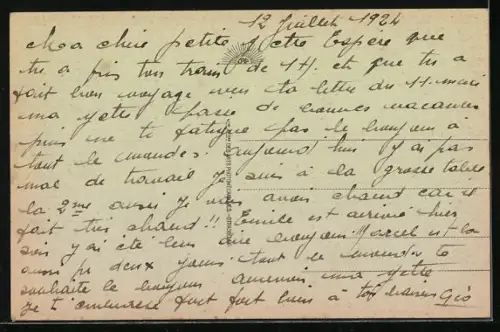 12 Juillet 1924
Ma chère petite Yette Espère que
tu a pris ton train de 11 H. et que tu a
fait bon voyage reçu ta lettre du 11 merci
ma yette passe de bonnes vacances
puis ne te fatigue pas le bonjour à
tout le monde. aujourd'hui j'y ai pas
mal de travail je suis à la grosse table
la 2me aussi je vais avoir chaud car il
fait très chaud!! Emile est arrivé hier
soir j'y ai été leur dire bonjour. Marcel est là
aussi pr deux jours tout le monde te
souhaite le bonjour ma yette
Je t'embrasse fort fort bien à toi baisers Gio